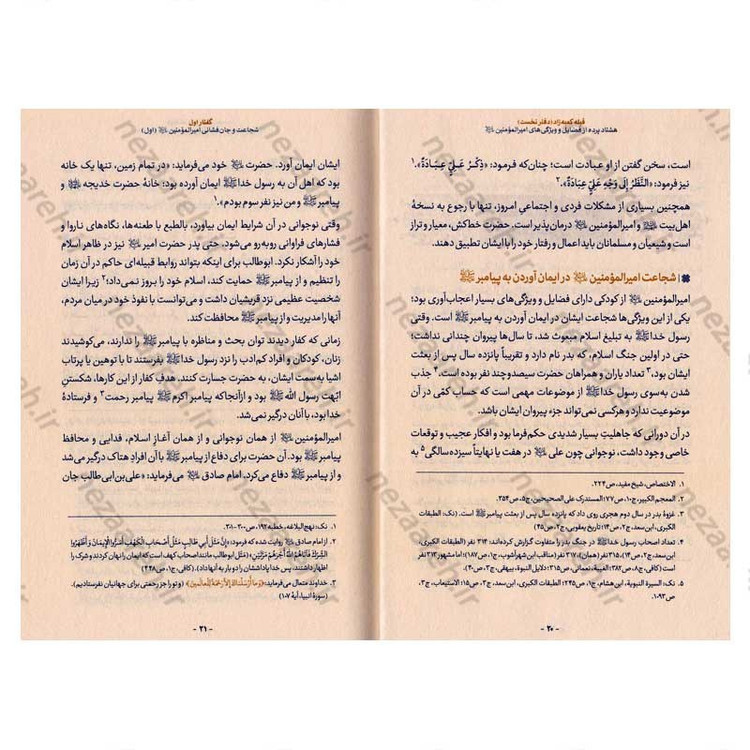 قبله کعبه زاد (دفتر نخست)
هشتاد پرده از فضایل و ویژگی‌های امیرالمؤمنین ﷷ
است، سخن گفتن از او عبادت است؛ چنان‌که فرمود: «ذِکْرُ عَلِيٍّ عِبَادَةٌ».۱
نیز فرمود: «النَّظَرُ إِلَی وَجْهِ عَلِيٍّ عِبَادَةٌ».۲
همچنین بسیاری از مشکلات فردی و اجتماعی امروز، تنها با رجوع به نسخهٔ
اهل‌بیت و امیرالمؤمنین درمان‌پذیر است. حضرت خط‌کش، معیار و تراز
است و شیعیان و مسلمانان باید اعمال و رفتار خود را با ایشان تطبیق دهند.
شجاعت امیرالمؤمنین در ایمان آوردن به پیامبر ﷺ
امیرالمؤمنین از کودکی دارای فضایل و ویژگی‌های بسیار اعجاب‌آوری بود؛
یکی از این ویژگی‌ها شجاعت ایشان در ایمان آوردن به پیامبر ﷺ است. وقتی
رسول خدا ﷺ به تبلیغ اسلام مبعوث شد، تا سال‌ها پیروان چندانی نداشت؛
حتی در اولین جنگ اسلام، که بدر نام دارد و تقریباً پانزده سال پس از بعثت
ایشان بود،۳ تعداد یاران و همراهان حضرت سیصدوچند نفر بوده است.۴ جذب
شدن به‌سوی رسول خدا ﷺ از موضوعات مهمی است که حساب کمّی در آن
موضوعیت ندارد و هرکسی نمی‌تواند جزء پیروان ایشان باشد.
در آن دورانی که جاهلیتِ بسیار شدیدی حکم‌فرما بود و افکار عجیب و توقعات
خاصی وجود داشت، نوجوانی چون علی در هفت یا نهایتاً سیزده‌سالگی۵ به
۱. الاختصاص، شیخ مفید، ص۲۲۴.
۲. المعجم الکبیر، ج۱۰، ص۷۷؛ المستدرک علی الصحیحین، ج۵، ص۲۵۴.
۳. غزوهٔ بدر در سال دوم هجری روی داد که پانزده سال پس از بعثت پیامبر ﷺ است. (نک: الطبقات
الکبری، ابن‌سعد، ج۲، ص۱۴؛ تاریخ یعقوبی، ج۲، ص۴۵)
۴. تعداد اصحاب رسول خدا ﷺ در جنگ بدر را متفاوت گزارش کرده‌اند: ۳۱۴ نفر (الطبقات الکبری،
ابن سعد، ج۲، ص۱۴)، ۳۱۵ نفر (همان)، ۳۱۷ نفر (مناقب ابن شهرآشوب، ج۱، ص۱۸۷)؛ اما مشهور ۳۱۳ نفر
است (کافی، ج۸، ص۳۸۲؛ الغیبة، نعمانی، ص۳۱۵؛ دلایل النبوة، بیهقی، ج۳، ص۴۰).
۵. نک: السیرة النبویة، ابن‌هشام، ج۱، ص۲۴۵؛ الطبقات الکبری، ابن سعد، ج۳، ص۱۵؛ الاستیعاب، ج۳،
ص۱۰۹۳.
- ۲۰ -
گفتار اول
شجاعت و جان‌فشانی امیرالمؤمنین (اول)
ایشان ایمان آورد. حضرت خود می‌فرماید: «در تمام زمین، تنها یک خانه
بود که اهل آن به رسول خدا ﷺ ایمان آورده بود؛ خانهٔ حضرت خدیجه و
پیامبر ﷺ و من نیز نفر سوم بودم».۱
وقتی نوجوانی در آن شرایط ایمان بیاورد، بالطبع با طعنه‌ها، نگاه‌های ناروا و
فشارهای فراوانی روبه‌رو می‌شود. حتی پدر حضرت امیر نیز در ظاهر اسلام
خود را آشکار نکرد. ابوطالب برای اینکه بتواند روابط قبیله‌ای حاکم در آن زمان
را تنظیم و از پیامبر ﷺ حمایت کند، اسلام خود را بروز نمی‌داد؛۲ زیرا ایشان
شخصیت عظیمی نزد قریشیان داشت و می‌توانست با نفوذ خود در میان مردم،
آنها را مدیریت و از پیامبر ﷺ محافظت کند.
زمانی که کفار دیدند توان بحث و مناظره با پیامبر ﷺ را ندارند، می‌کوشیدند
زنان، کودکان و افراد کم‌ادب را نزد رسول خدا ﷺ بفرستند تا با توهین یا پرتاب
اشیا به‌سمت ایشان، به حضرت جسارت کنند. هدفِ کفار از این کارها، شکستنِ
ابّهت رسول الله ﷺ بود و ازآنجاکه پیامبر اکرم ﷺ پیامبر رحمت۳ و فرستادهٔ
خدا بود، با آنان درگیر نمی‌شد.
امیرالمؤمنین از همان نوجوانی و از همان آغاز اسلام، فدایی و محافظ
پیامبر ﷺ بود. آن حضرت برای دفاع از پیامبر ﷺ با آن افرادِ هتاک درگیر می‌شد
و از پیامبر ﷺ دفاع می‌کرد. امام صادق می‌فرماید: «علی‌بن‌ابی‌طالب جان
۱. نک: نهج‌البلاغه، خطبه ۱۹۲، ص۳۰۰-۳۰۱.
۲. از امام صادق روایت شده که فرمود: «إِنَّ مَثَلَ أَبِي طَالِبٍ مَثَلُ أَصْحَابِ الْكَهْفِ أَسَرُّوا الْإِيمَانَ وَ أَظْهَرُوا
الشِّرْكَ فَآتَاهُمُ اللَّهُ أَجْرَهُمْ مَرَّتَيْنِ» (مَثَل ابوطالب مانند اصحاب کهف است که ایمان را نهان کردند و شرک را
اظهار داشتند، پس خدا پاداششان را دو بار به آنها داد). (کافی، ج۱، ص۴۴۸)
۳. خداوند متعال می‌فرماید: ﴿وَمَا أَرْسَلْنَاكَ إِلَّا رَحْمَةً لِلْعَالَمِينَ﴾ (و تو را جز رحمتی برای جهانیان نفرستادیم).
(سورهٔ انبیا، آیهٔ ۱۰۷)
- ۲۱ -
nezaareh.ir